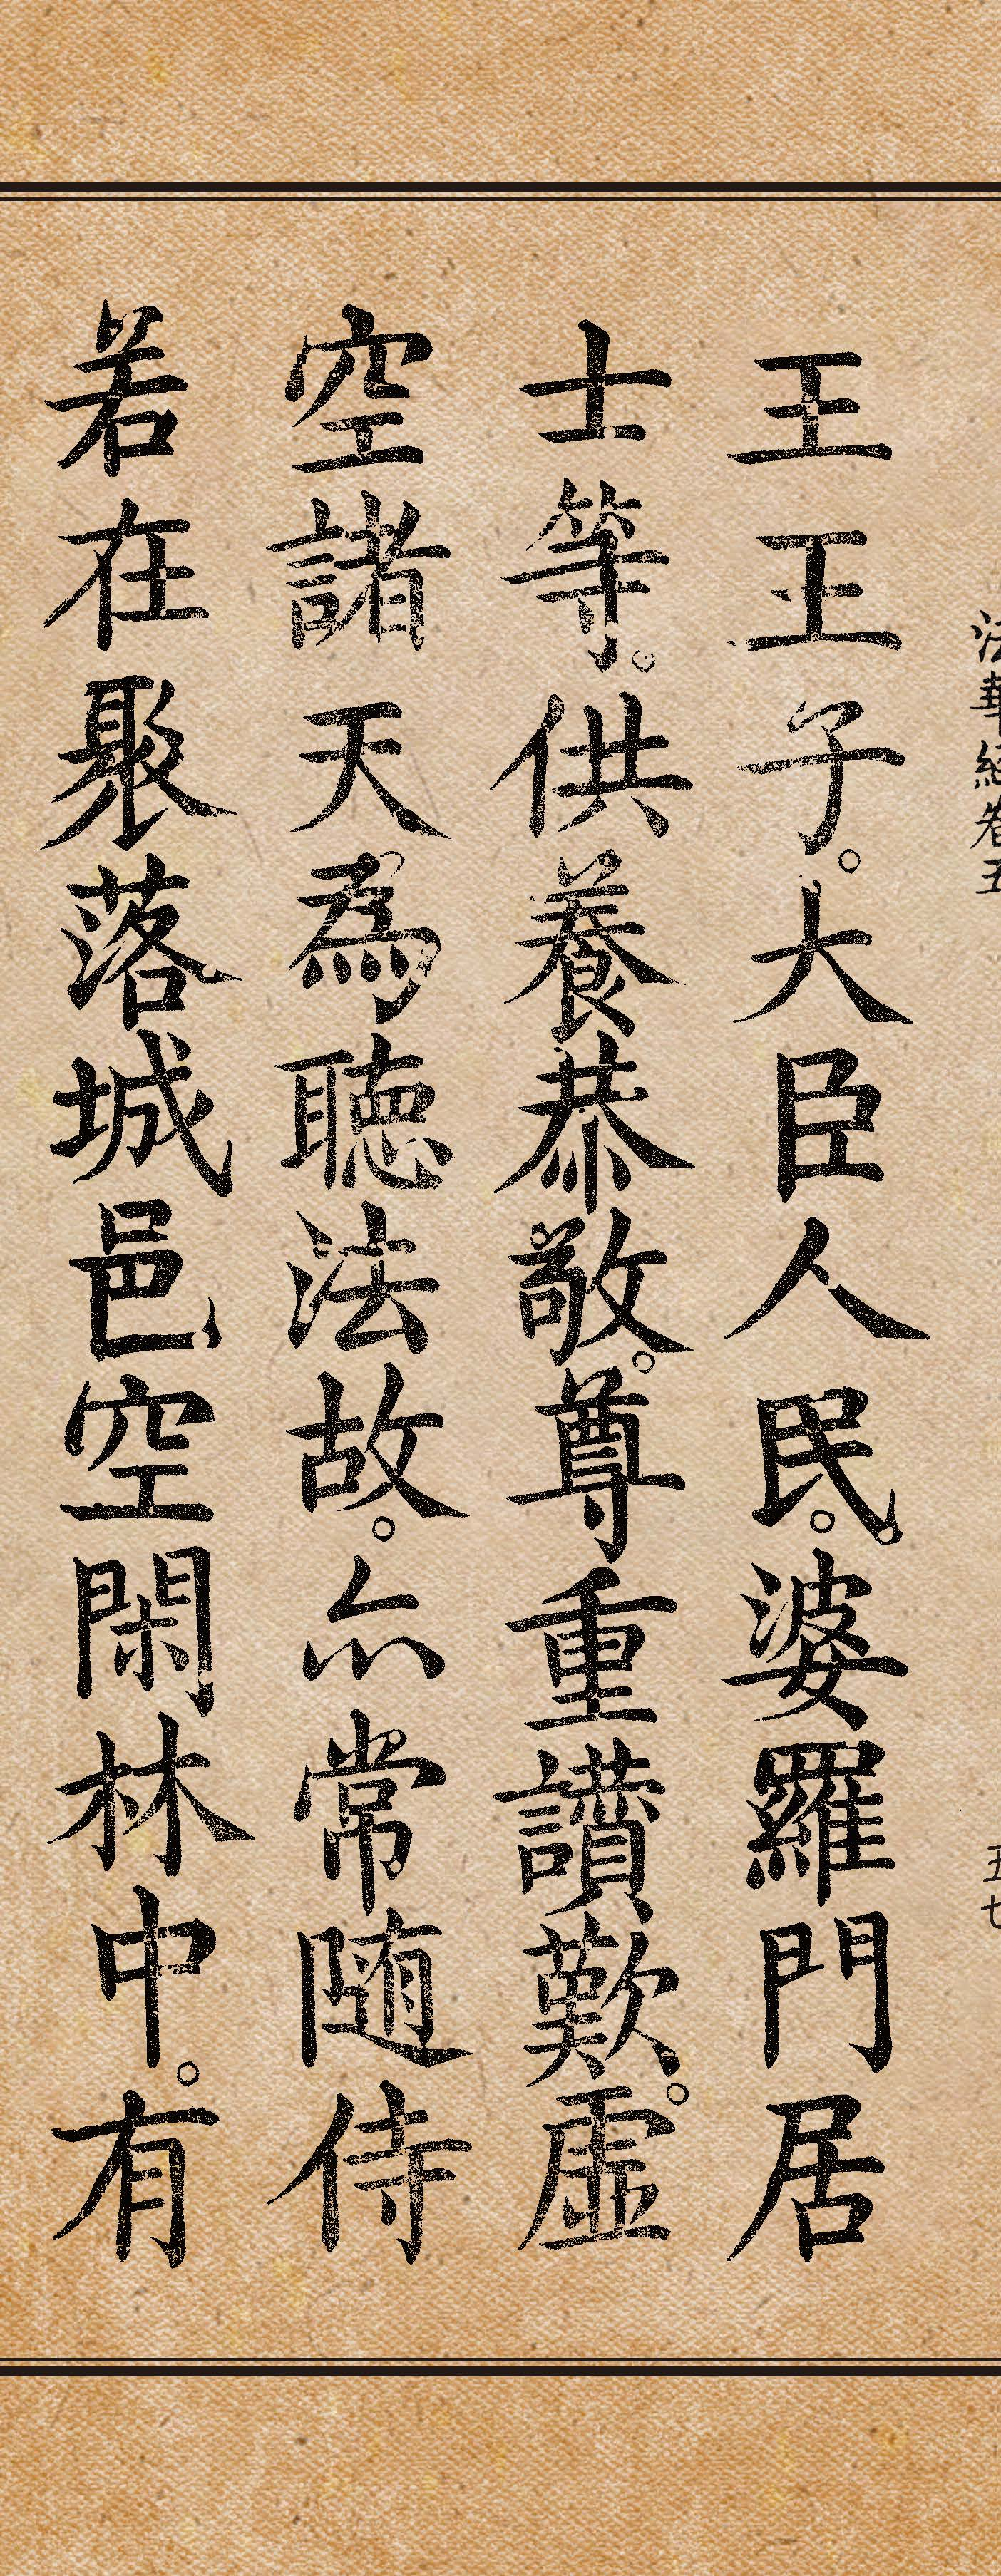 法華經卷五
五七
王王子。大臣人民。婆羅門居
士等。供養恭敬。尊重讚歎。虛
空諸天為聽法故。亦常隨侍
若在聚落城邑空閑林中。有